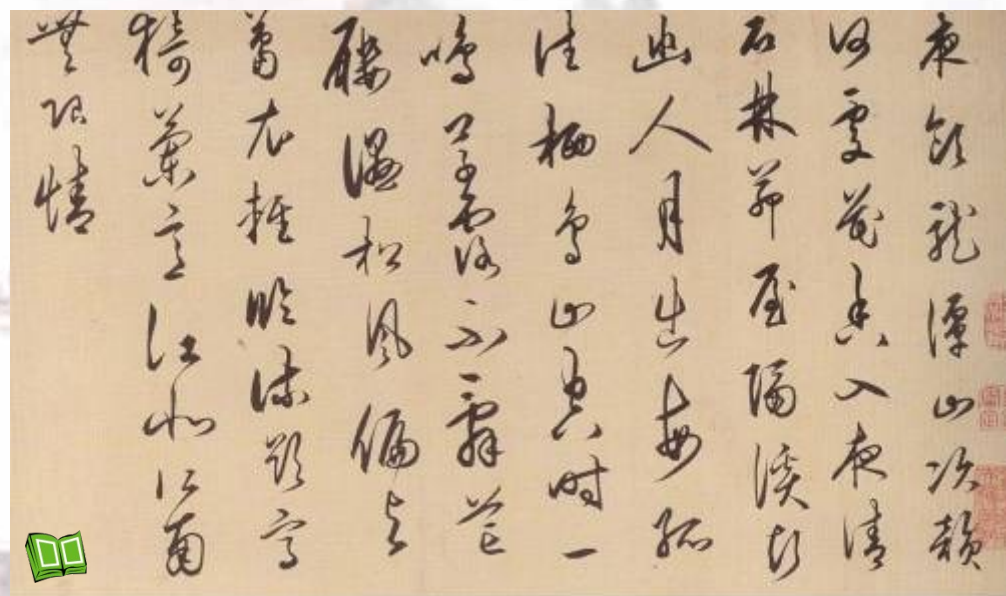 夜飲龍潭山次韻
何處花香入夜清
石林茅屋隔溪聲
幽人月出每孤
往棲鳥山空時一
鳴草露不辭芒
屨濕松風偏與
葛衣輕臨流欲寫
猗蘭意江北江南
無限情